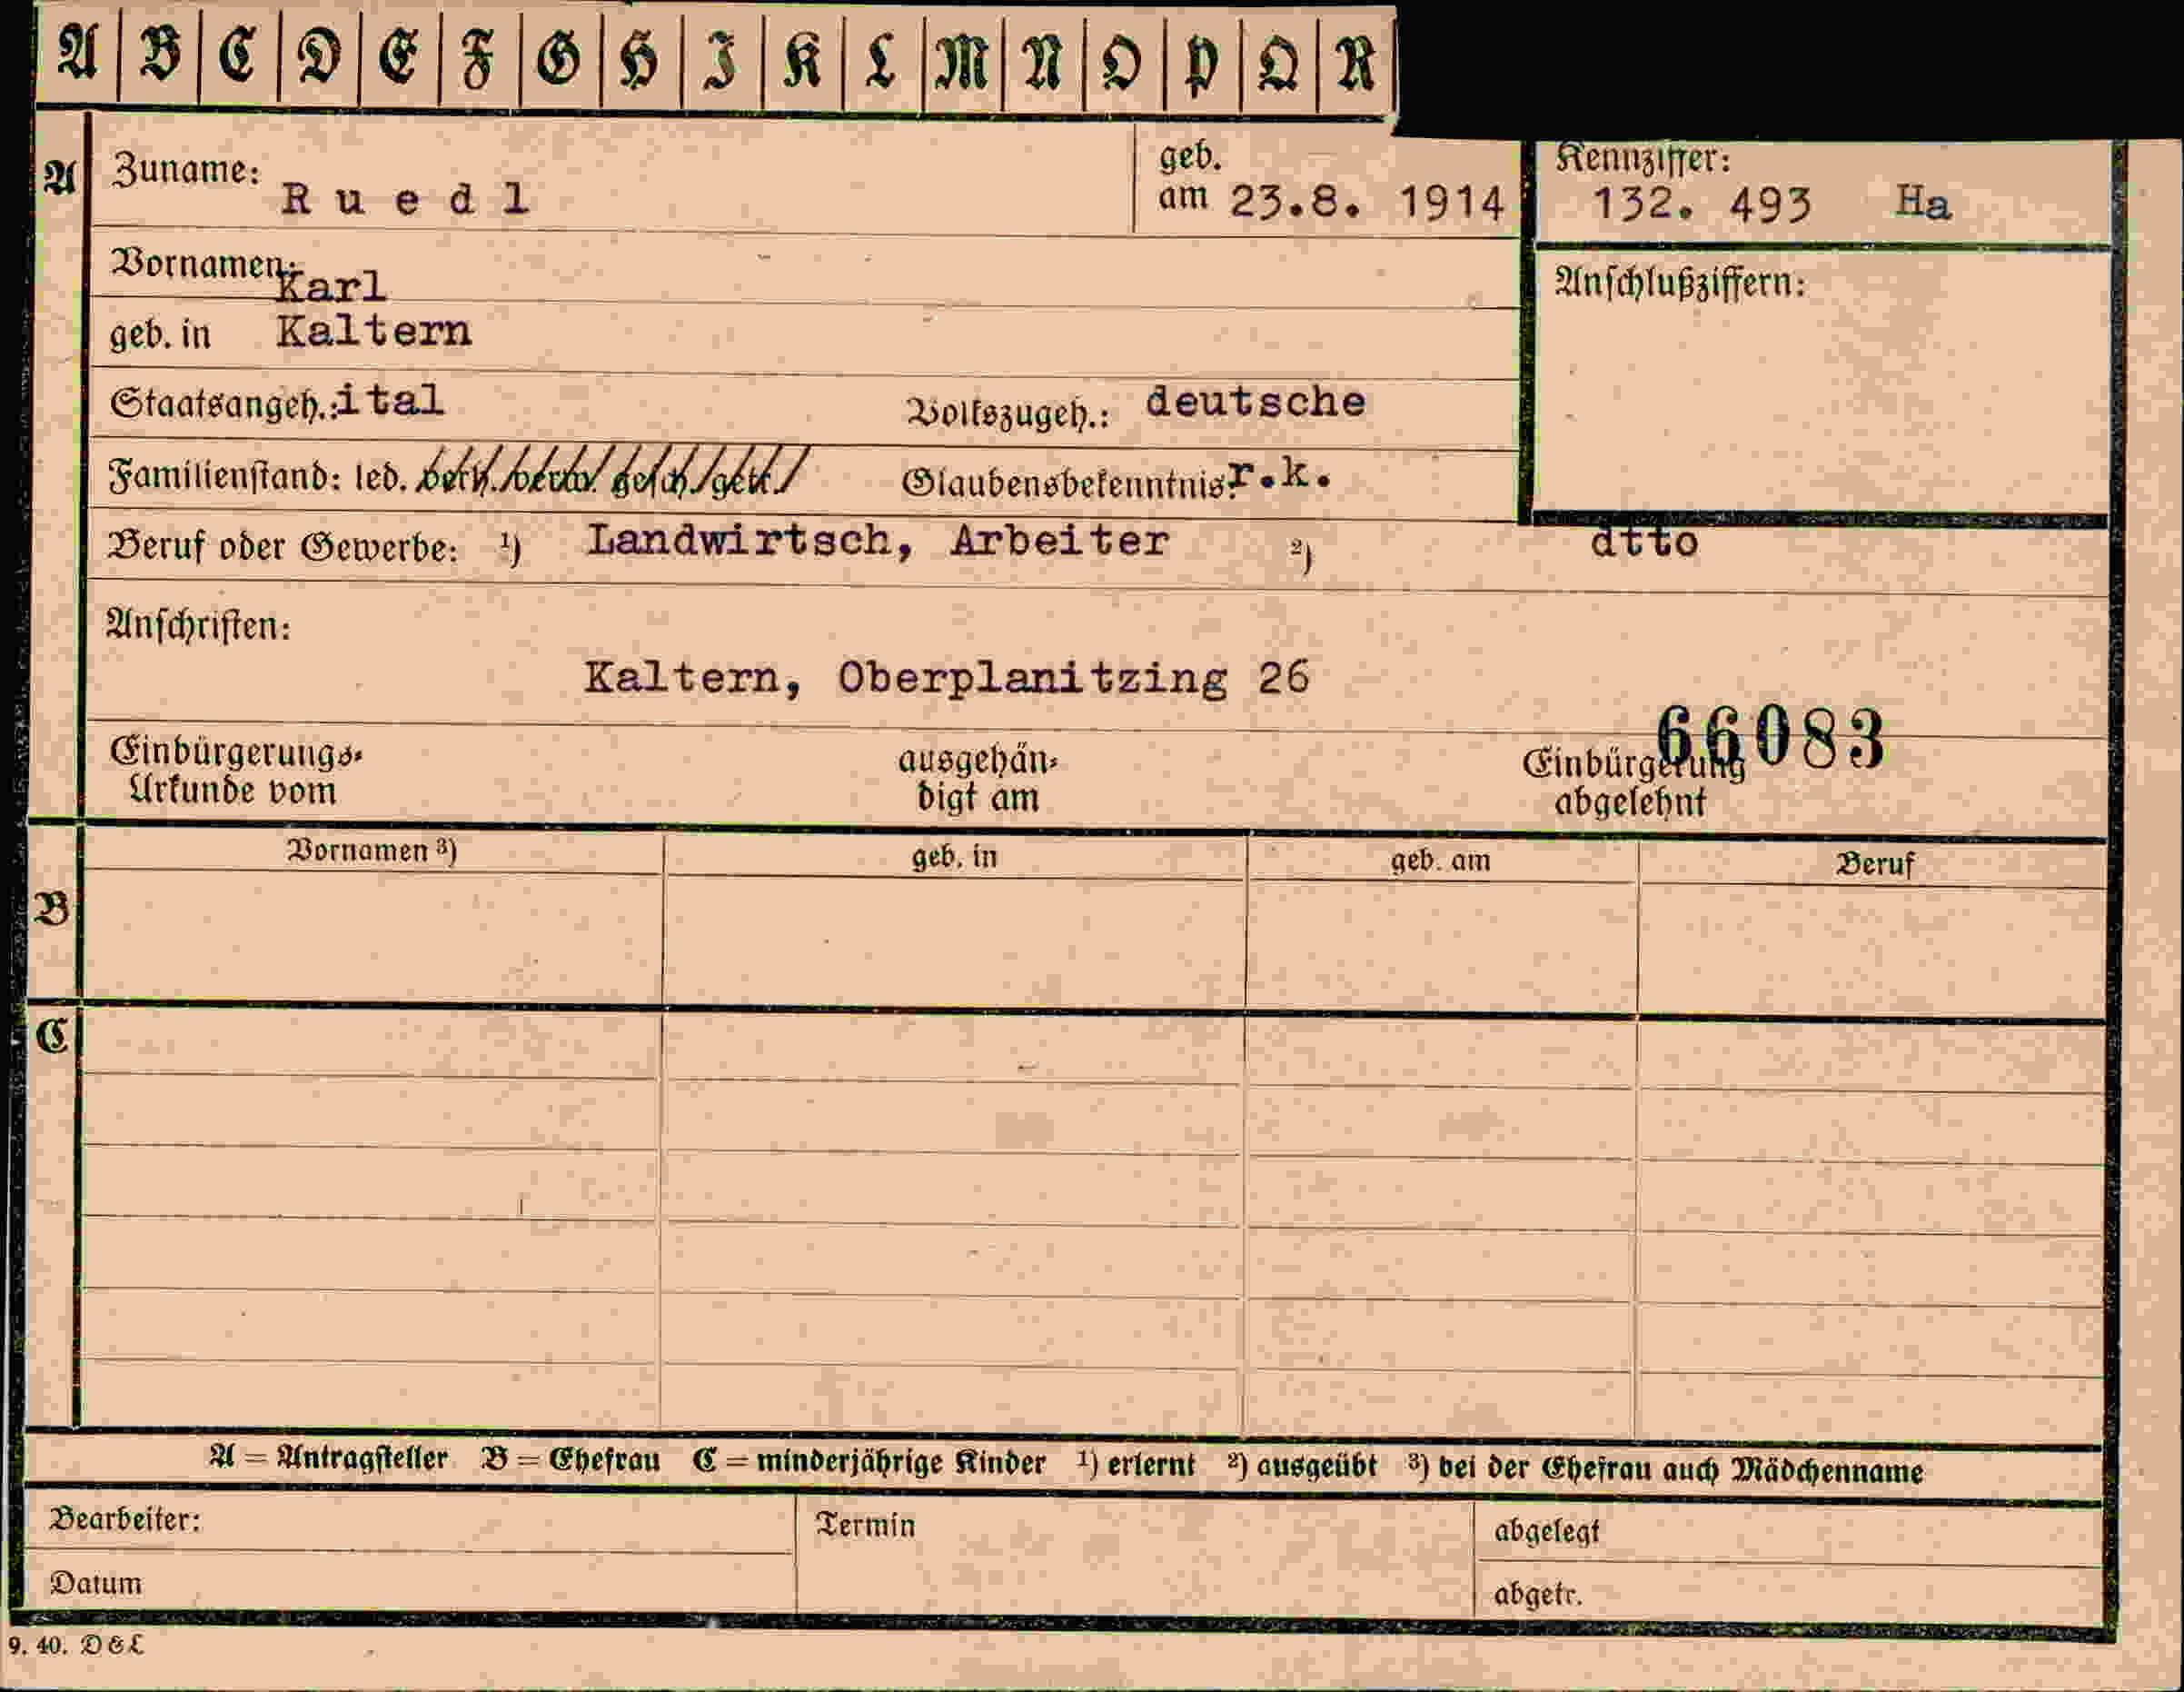 A B C D E F G H I K L M N O P Q R
A Zuname: Ruedl geb. am 23.8. 1914 Kennziffer: 132. 493 Ha
Vornamen: Karl Anschlußziffern:
geb. in Kaltern
Staatsangeh.: ital Volkszugeh.: deutsche
Familienstand: led. verh. verw. gesch. getr. Glaubensbekenntnis: r.k.
Beruf oder Gewerbe: 1) Landwirtsch, Arbeiter 2) dtto
Anschriften:
Kaltern, Oberplanitzing 26
66083
Einbürgerungs- ausgehän- Einbürgerung
Urkunde vom digt am abgelehnt
Vornamen 3) geb. in geb. am Beruf
B
C
A = Antragsteller B = Ehefrau C = minderjährige Kinder 1) erlernt 2) ausgeübt 3) bei der Ehefrau auch Mädchenname
Bearbeiter: Termin abgelegt
Datum abgetr.
9. 40. D&L